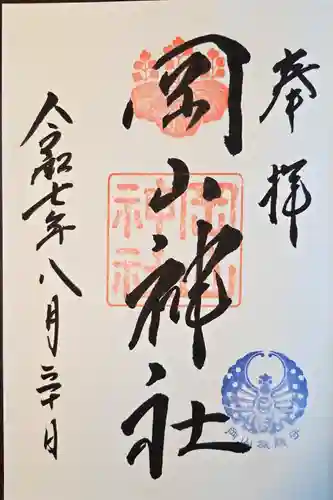 奉拝
岡山神社
岡山
神社
令和七年八月二十日